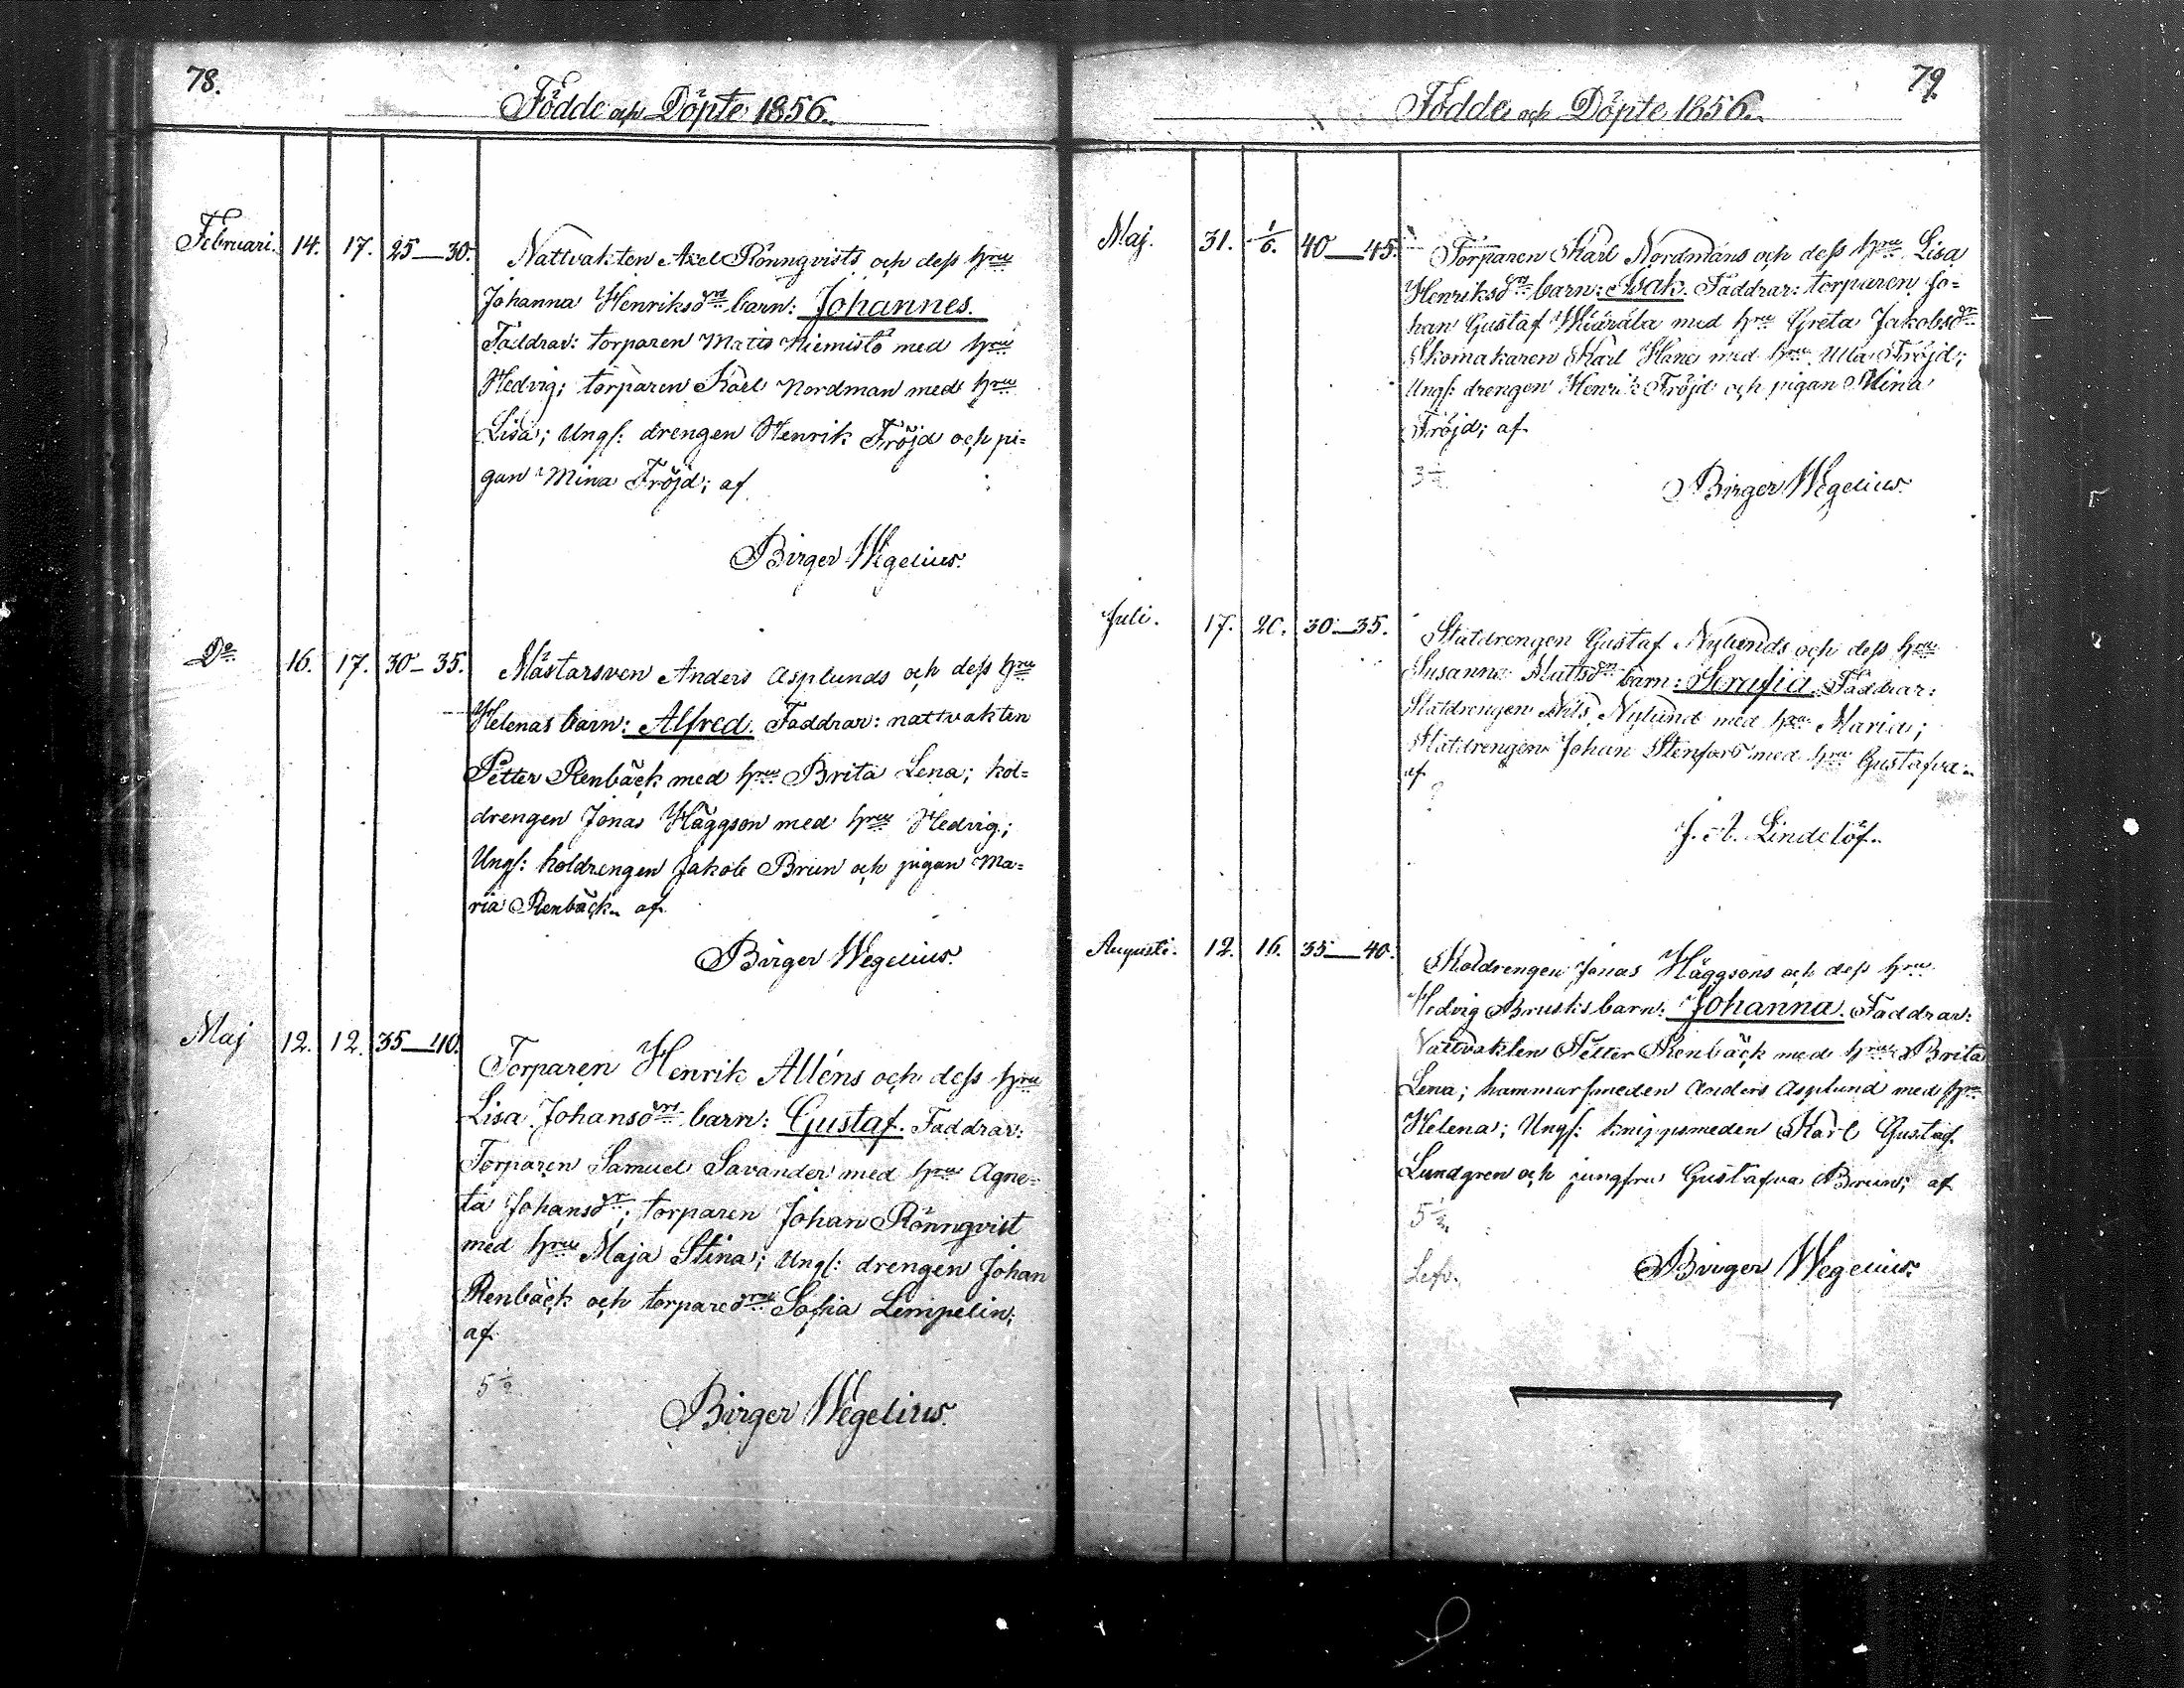 78.
Födde och Döpte 1856.
Februari. 14. 17. 25—30. Nattvakten Axel Rönnqvists och dess hru
Johanna Henriksdr barn: Johannes.
Faddrar: torparen Matts Niemistö med hru
Hedvig; torparen Karl Nordman med hru
Lisa; Ungf: drengen Henrik Fröjd och pi=
gan Mina Fröjd; af
Birger Wegelius.
Do 16. 17. 30—35. Mästarsven Anders Asplunds och dess hru
Helenas barn: Alfred. Faddrar: nattvakten
Petter Renbäck med hru Brita Lena; kol=
drengen Jonas Häggson med hru Hedvig;
Ungf: koldrengen Jakob Brun och pigan Ma=
ria Renbäck. af
Birger Wegelius.
Maj 12. 12. 35—40. Torparen Henrik Alléns och dess hru
Lisa Johansdr barn: Gustaf. Faddrar:
Torparen Samuel Savander med hru Agne=
ta Johansdr; torparen Johan Rönnqvist
med hru Maja Stina; Ungf: drengen Johan
Renbäck och torparedrn Sofia Lempelin;
af
5 1/2
Birger Wegelius.
79.
Födde och Döpte 1856.
Maj. 31. 1/6. 40—45. Torparen Karl Nordmans och dess hru Lisa
Henriksdr barn: Isak. Faddrar: torparen Jo=
han Gustaf med hru Greta Jakobsdr
Skomakaren Karl Hane med hru Ulla Fröjd;
Ungf: drengen Henrik Fröjd och pigan Mina
Fröjd; af
3 1/2
Birger Wegelius.
Juli. 17. 20. 30—35. Statdrengen Gustaf Nylunds och dess hru
Susanna Mattsdr barn: Serafia. Faddrar:
Statdrengen Nils Nylund med hru Maria;
Statdrengen Johan Stenfors med hru Gustafva.
af
?
J. A. Lindelöf.
Augusti. 12. 16. 35—40. Koldrengen Jonas Häggsons och dess hru
Hedvig Brusks barn: Johanna. Faddrar:
Nattvakten Petter Renbäck med hru Brita
Lena; hammarsmeden Anders Asplund med hru
Helena; Ungf: knippsmeden Karl Gustaf
Lundgren och jungfru Gustafva Brun; af
5 1/2
Lefv.
Birger Wegelius.